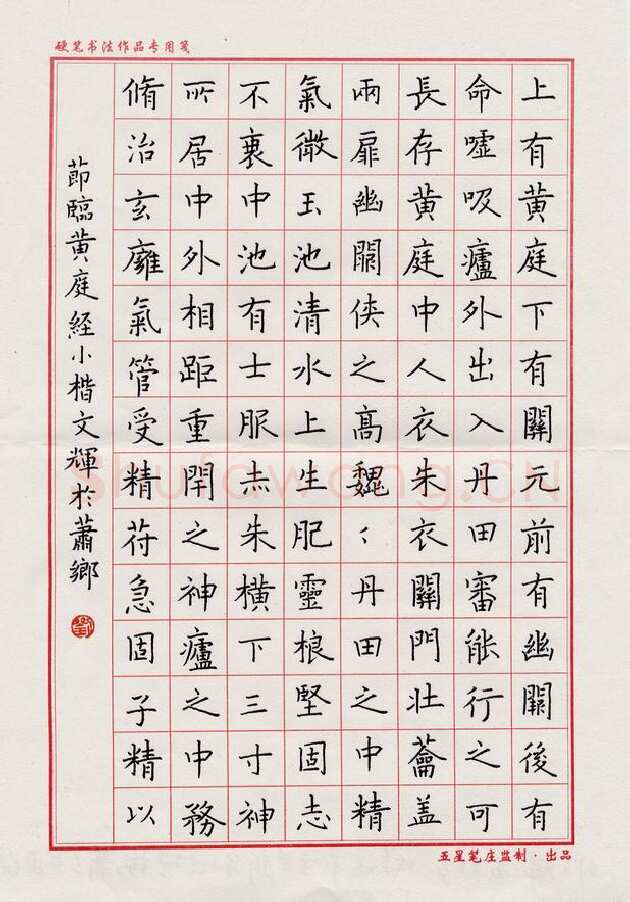 硬笔书法作品专用笺
上有黄庭下有關元前有幽闕後有
命噓吸廬外出入丹田審能行之可
長存黄庭中人衣朱衣關門壯蘥盖
兩扉幽闕俠之高魏〻丹田之中精
氣微玉池清水上生肥靈根堅固志
不衰中池有士服赤朱橫下三寸神
所居中外相距重閇之神廬之中務
脩治玄癰氣管受精苻急固子精以
莭臨黄庭経小楷文輝於蕭鄉
shufawang.CN
五星笔庄监制·出品